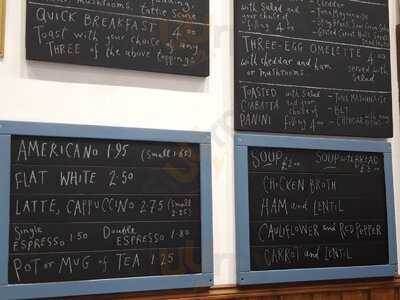 mushrooms,
tattie scone
QUICK BREAKFAST 4.00
Toast with your choice of any
THREE of the above toppings.
with Salad and
your choice of
filling 4.00
- Cheddar
THREE-EGG OMELETTE 4.00
with cheddar and ham
or mushrooms.
served with
Salad
TOASTED with Salad - TUNA MAYONNAISE
CIABATTA and your - BLT
PANINI choice of
filling 4.00 - CHEDDAR
AMERICANO 1.95 (Small 1.65)
FLAT WHITE 2.50
LATTE, CAPPUCCINO 2.75 (Small 2.25)
Single ESPRESSO 1.50 Double ESPRESSO 1.80
POT or MUG of TEA 1.25
SOUP £2.00 SOUP with BREAD
CHICKEN BROTH
HAM and LENTIL
CAULIFLOWER and RED PEPPER
CARROT and LENTIL